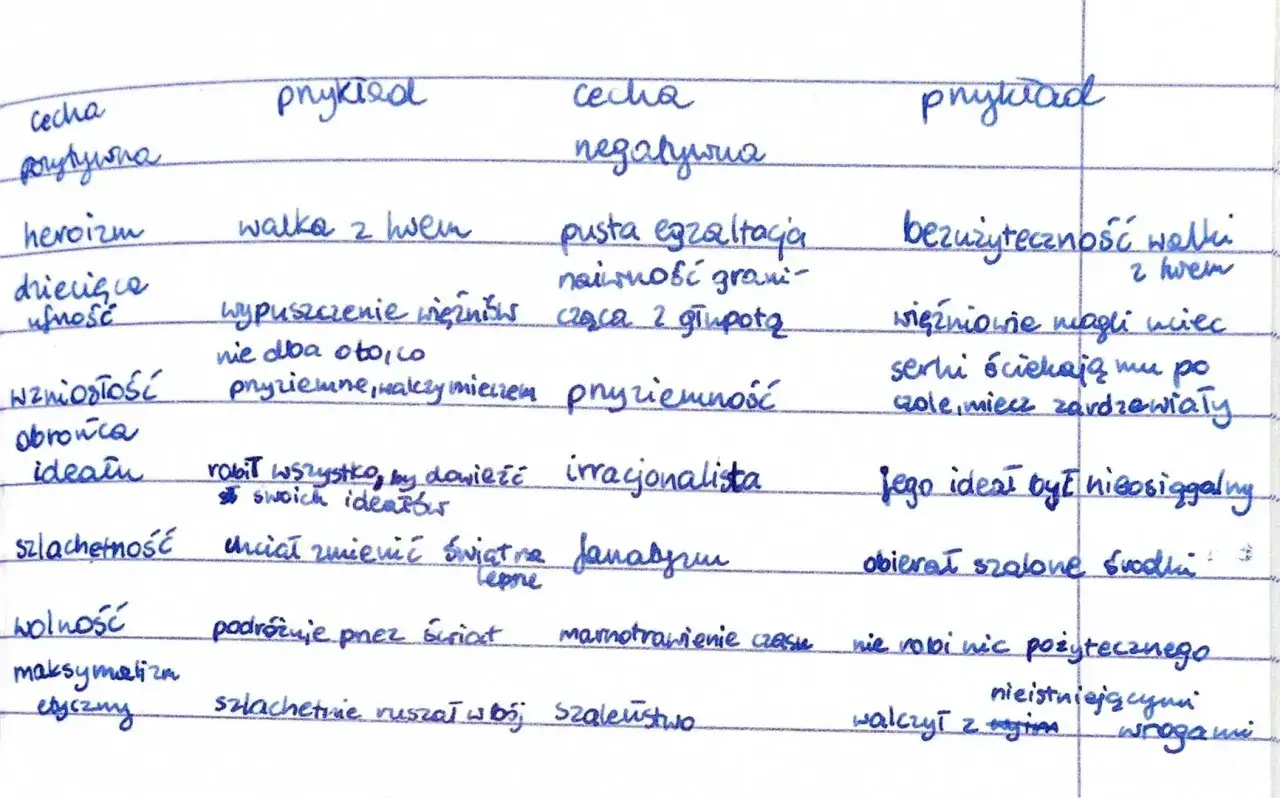 cecha pozytywna przykład cecha negatywna przykład
heroizm walka z lwem pusta egzaltacja bezużyteczność walki z lwem
dziecięca ufność wypuszczenie więźniów naiwność grani-
cząca z głupotą więźniowie mogli uciec
wzniosłość nie dba o to, co
przyziemne, walczy mieczem przyziemność serki ściekają mu po
czole, miecz zardzewiały
obrońca ideału robił wszystko, by dowieźć
swoich ideałów irracjonalista Jego ideał był nieosiągalny
szlachetność chciał zmienić świat na
lepsze fanatyzm obierał szalone środki
wolność podróżuje przez świat marnotrawienie czasu nie robi nic pożytecznego
maksymalizm etyczny szlachetnie ruszał w bój szaleństwo walczył z nieistniejącymi wrogami